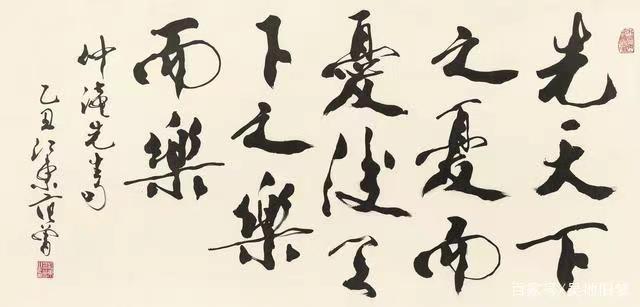 先天下
之憂而
憂後天
下之樂
而樂
仲淹先生句
乙丑江東范曾
百家号/